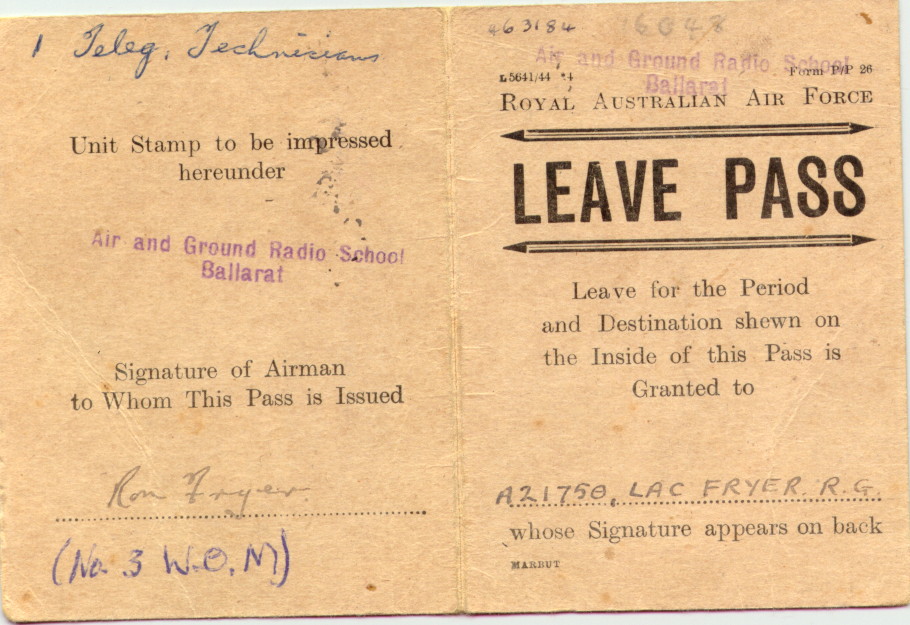 1 Teleg. Technicians
Unit Stamp to be impressed
hereunder
Air and Ground Radio School
Ballarat
Signature of Airman
to Whom This Pass is Issued
Ron Fryer
(No. 3 W.O.N)
63184 16048
Air and Ground Radio School
Ballarat
L5641/44 Form P/P 26
ROYAL AUSTRALIAN AIR FORCE
LEAVE PASS
Leave for the Period
and Destination shewn on
the Inside of this Pass is
Granted to
A21750, LAC FRYER. R.G.
whose Signature appears on back
MARBUT